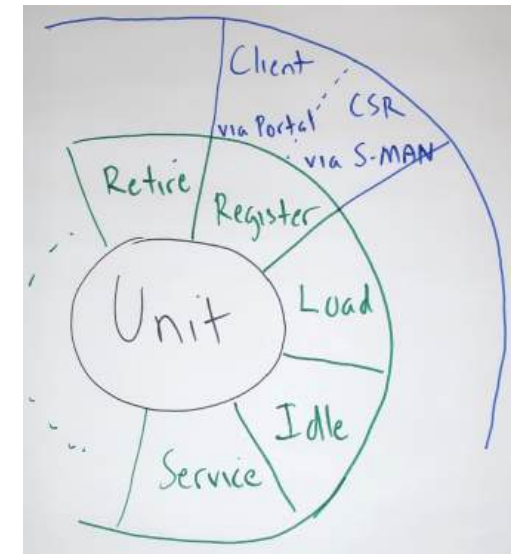 Client
CSR
via Portal
via S-MAN
Retire
Register
Load
Unit
Idle
Service